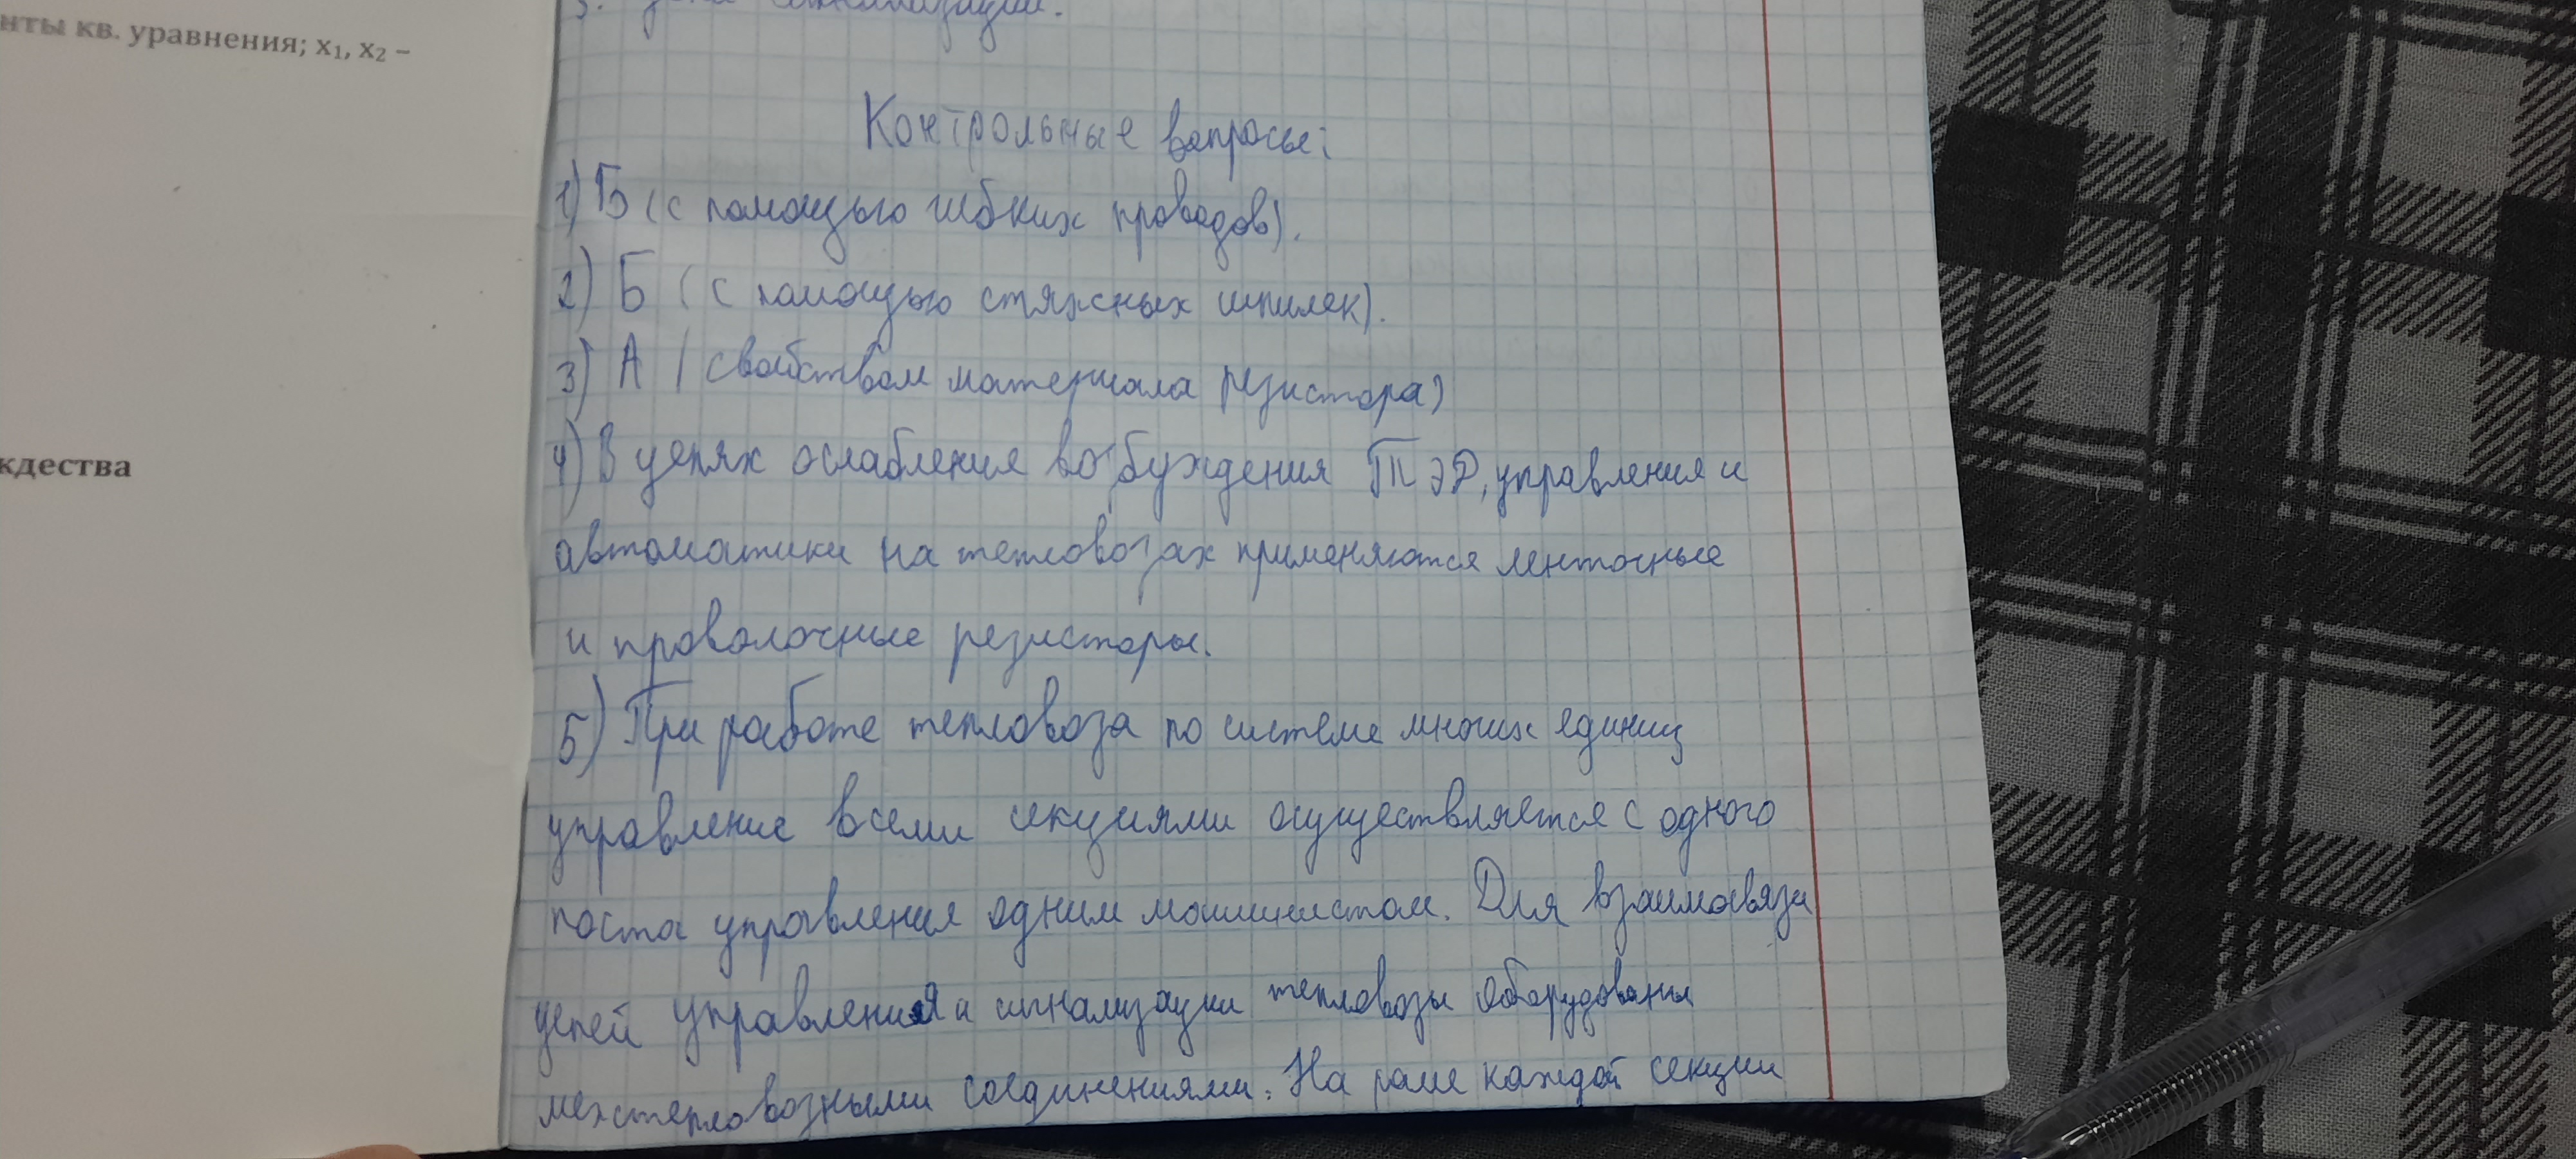 нты кв. уравнения; x₁, x₂ –
ждества
Контрольные вопросы:
1) Б (с помощью гибких проводов).
2) Б (с помощью стяжных шпилек).
3) А (свойством материала резистора)
4) В цепях ослабления возбуждения ТЭД, управления и
автоматики на тепловозах применяются ленточные
и проволочные резисторы.
5) При работе тепловоза по системе многих единиц
управление всеми секциями осуществляется с одного
поста управления одним машинистом. Для взаимосвязи
цепей управления и сигнализации тепловозы оборудованы
межтепловозными соединениями. На раме каждой секции